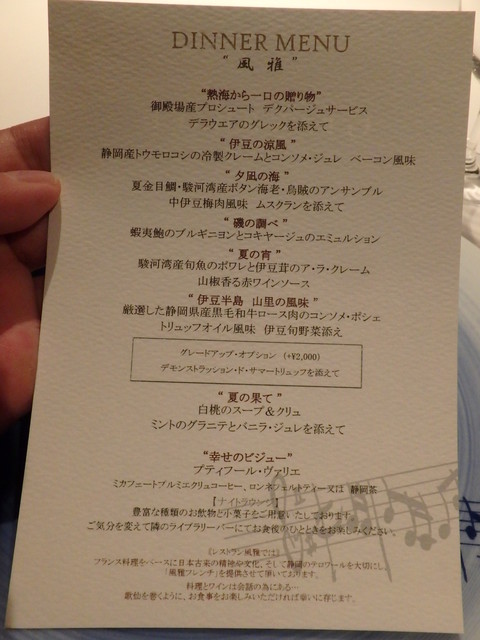 DINNER MENU
“ 風 雅 ”
“熱海から一口の贈り物”
御殿場産プロシュート デクパージュサービス
デラウエアのグレックを添えて
“ 伊豆の涼風 ”
静岡産トウモロコシの冷製クレームとコンソメ・ジュレ ベーコン風味
“ 夕凪の海 ”
夏金目鯛・駿河湾産ボタン海老・烏賊のアンサンブル
中伊豆梅肉風味 ムスクランを添えて
“ 磯の調べ ”
蝦夷鮑のブルギニヨンとコキヤージュのエミュルション
“ 夏の宵 ”
駿河湾産旬魚のポワレと伊豆茸のア・ラ・クレーム
山椒香る赤ワインソース
“ 伊豆半島 山里の風味 ”
厳選した静岡県産黒毛和牛ロース肉のコンソメ・ポシェ
トリュッフオイル風味 伊豆旬野菜添え
グレードアップ・オプション (+¥2,000)
デモンストラッション・ド・サマートリュッフを添えて
“ 夏の果て ”
白桃のスープ＆クリュ
ミントのグラニテとバニラ・ジュレを添えて
“幸せのビジュー”
プティフール・ヴァリエ
ミカフェートプルミエクリュコーヒー、ロンネフェルトティー又は 静岡茶
【ナイトラウンジ】
豊富な種類のお飲物と小菓子をご用意いたしております。
ご気分を変えて隣のライブラリーバーにてお食後のひとときをお楽しみください。
《レストラン風雅では》
フランス料理をベースに日本古来の精神や文化、そして静岡のテロワールを大切にし、
「風雅フレンチ」を提供させて頂いております。
料理とワインは会話の為にある…
歌仙を巻くように、お食事をお楽しみいただければ幸いに存じます。